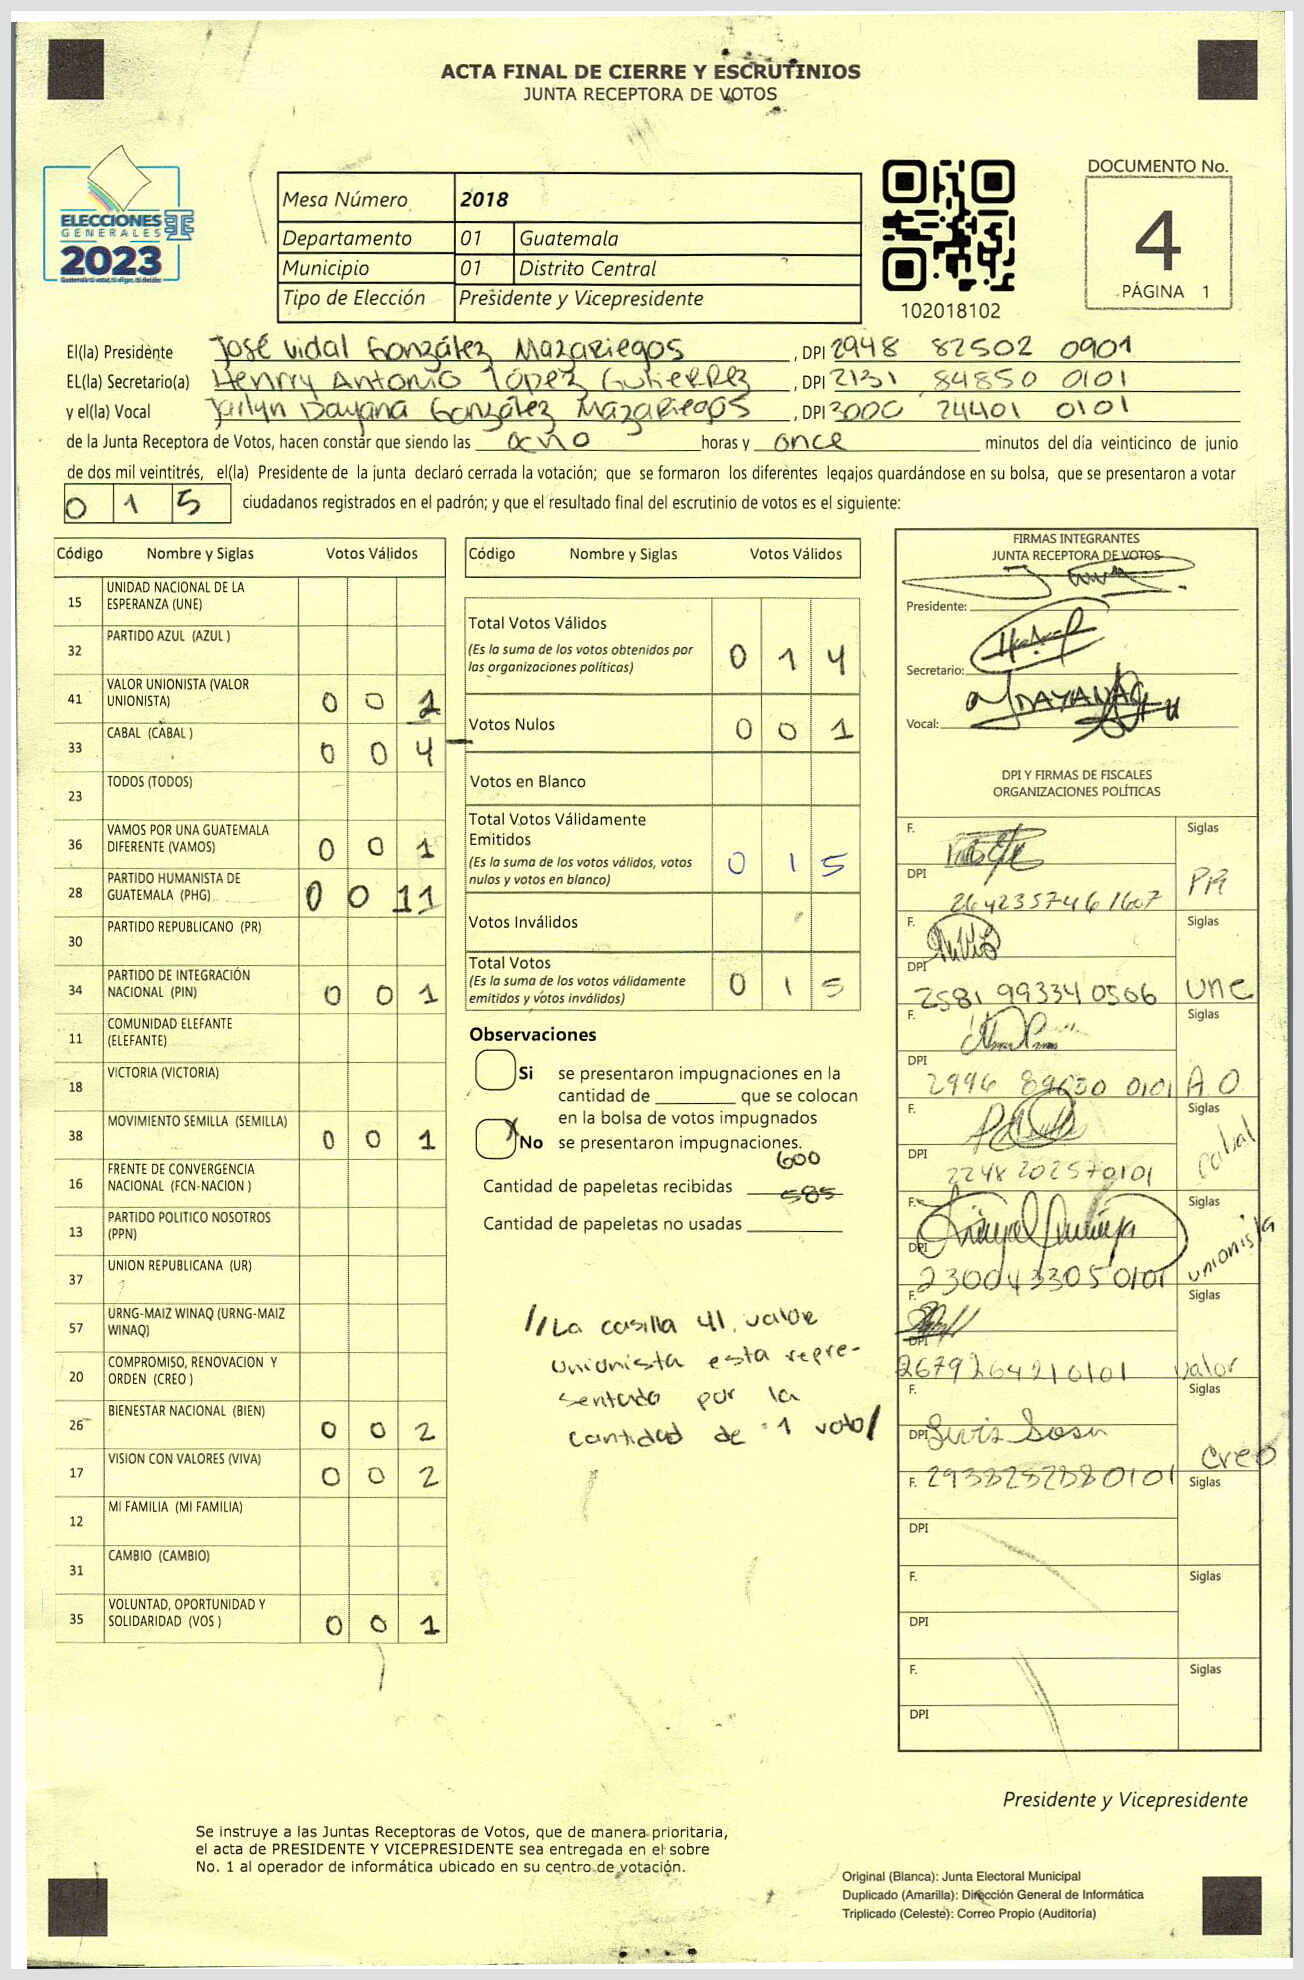 ACTA FINAL DE CIERRE Y ESCRUTINIOS
JUNTA RECEPTORA DE VOTOS
ELECCIONES
GENERALES
2023
Mesa Número 2018
Departamento 01 Guatemala
Municipio 01 Distrito Central
Tipo de Elección Presidente y Vicepresidente
102018102
DOCUMENTO No.
4
PÁGINA 1
El(la) Presidente José Vidal González Mazariegos, DPI 2948 82502 0901
EL(la) Secretario(a) Henrry Antonio López Gutierrez, DPI 2131 84850 0101
y el(la) Vocal Jailyn Dayana González Mazariegos, DPI 3000 24401 0101
de la Junta Receptora de Votos, hacen constar que siendo las ocho horas y once minutos del día veinticinco de junio
de dos mil veintitrés, el(la) Presidente de la junta declaró cerrada la votación; que se formaron los diferentes legajos guardándose en su bolsa, que se presentaron a votar
0 1 5 ciudadanos registrados en el padrón; y que el resultado final del escrutinio de votos es el siguiente:
Código Nombre y Siglas Votos Válidos
15 UNIDAD NACIONAL DE LA ESPERANZA (UNE)
32 PARTIDO AZUL (AZUL )
41 VALOR UNIONISTA (VALOR UNIONISTA) 0 0 1
33 CABAL (CABAL ) 0 0 4
23 TODOS (TODOS)
36 VAMOS POR UNA GUATEMALA DIFERENTE (VAMOS) 0 0 1
28 PARTIDO HUMANISTA DE GUATEMALA (PHG) 0 0 11
30 PARTIDO REPUBLICANO (PR)
34 PARTIDO DE INTEGRACIÓN NACIONAL (PIN) 0 0 1
11 COMUNIDAD ELEFANTE (ELEFANTE)
18 VICTORIA (VICTORIA)
38 MOVIMIENTO SEMILLA (SEMILLA) 0 0 1
16 FRENTE DE CONVERGENCIA NACIONAL (FCN-NACION )
13 PARTIDO POLITICO NOSOTROS (PPN)
37 UNION REPUBLICANA (UR)
57 URNG-MAIZ WINAQ (URNG-MAIZ WINAQ)
20 COMPROMISO, RENOVACION Y ORDEN (CREO )
26 BIENESTAR NACIONAL (BIEN) 0 0 2
17 VISION CON VALORES (VIVA) 0 0 2
12 MI FAMILIA (MI FAMILIA)
31 CAMBIO (CAMBIO)
35 VOLUNTAD, OPORTUNIDAD Y SOLIDARIDAD (VOS ) 0 0 1
Código Nombre y Siglas Votos Válidos
Total Votos Válidos
(Es la suma de los votos obtenidos por
las organizaciones políticas) 0 1 4
Votos Nulos 0 0 1
Votos en Blanco
Total Votos Válidamente
Emitidos
(Es la suma de los votos válidos, votos
nulos y votos en blanco) 0 1 5
Votos Inválidos
Total Votos
(Es la suma de los votos válidamente
emitidos y votos inválidos) 0 1 5
Observaciones
Si se presentaron impugnaciones en la
cantidad de ________ que se colocan
en la bolsa de votos impugnados
X No se presentaron impugnaciones.
600
Cantidad de papeletas recibidas 585
Cantidad de papeletas no usadas
//La casilla 41, valor
unionista esta repre-
sentado por la
cantidad de 1 voto/
FIRMAS INTEGRANTES
JUNTA RECEPTORA DE VOTOS
Presidente:
Secretario:
Vocal:
DPI Y FIRMAS DE FISCALES
ORGANIZACIONES POLÍTICAS
F. Siglas
DPI 2642357461607
F. Siglas
DPI 2581 99334 0506 une
F. Siglas
DPI 2996 89630 0101 A.O
F. Siglas
DPI 2248 20257 0101 cabal
F. Siglas
DPI 2300433050101 unionista
F. Siglas
DPI 2679264210101 valor
F. Siglas
DPI Luis Sosa Creo
F. 2938232880101 Siglas
DPI
F. Siglas
DPI
F. Siglas
DPI
Presidente y Vicepresidente
Se instruye a las Juntas Receptoras de Votos, que de manera prioritaria,
el acta de PRESIDENTE Y VICEPRESIDENTE sea entregada en el sobre
No. 1 al operador de informática ubicado en su centro de votación.
Original (Blanca): Junta Electoral Municipal
Duplicado (Amarilla): Dirección General de Informática
Triplicado (Celeste): Correo Propio (Auditoría)